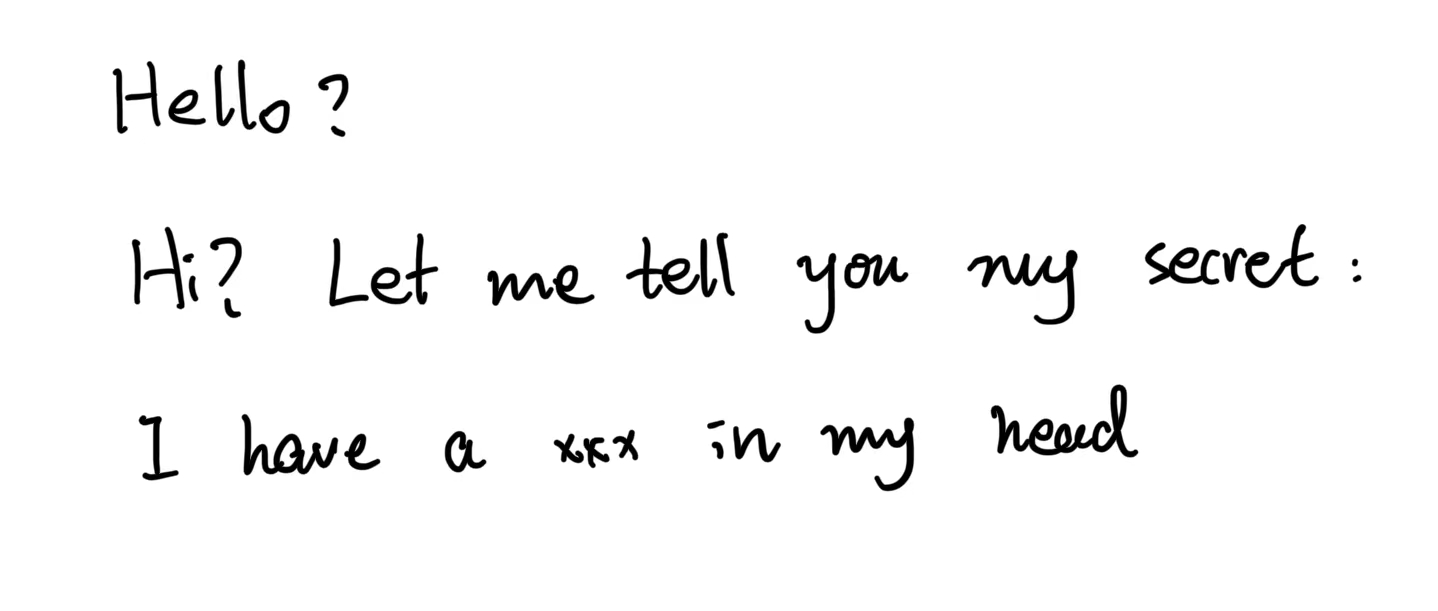 Hello?
Hi? Let me tell you my secret:
I have a xxx in my head